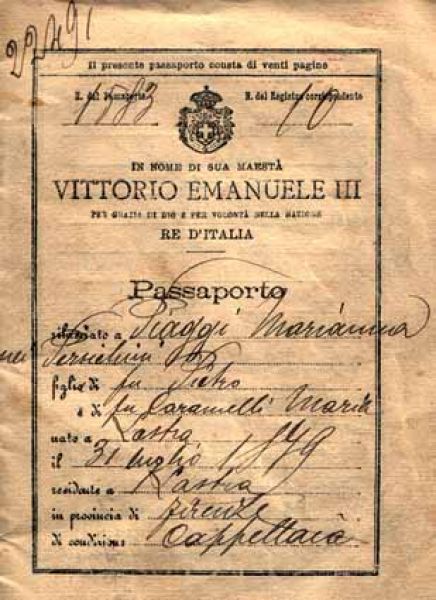 22491
Il presente passaporto consta di venti pagine
N. del Passaporto N. del Registro corrispondente
1583 10
IN NOME DI SUA MAESTÀ
VITTORIO EMANUELE III
PER GRAZIA DI DIO E PER VOLONTÀ DELLA NAZIONE
RE D'ITALIA
Passaporto
rilasciato a Piaggi Marianna
figlio di fu Pietro
e di fu Caramelli Maria
nato a Lastra
il 31 luglio 1879
residente a Lastra
in provincia di Firenze
di condizione Cappellaia